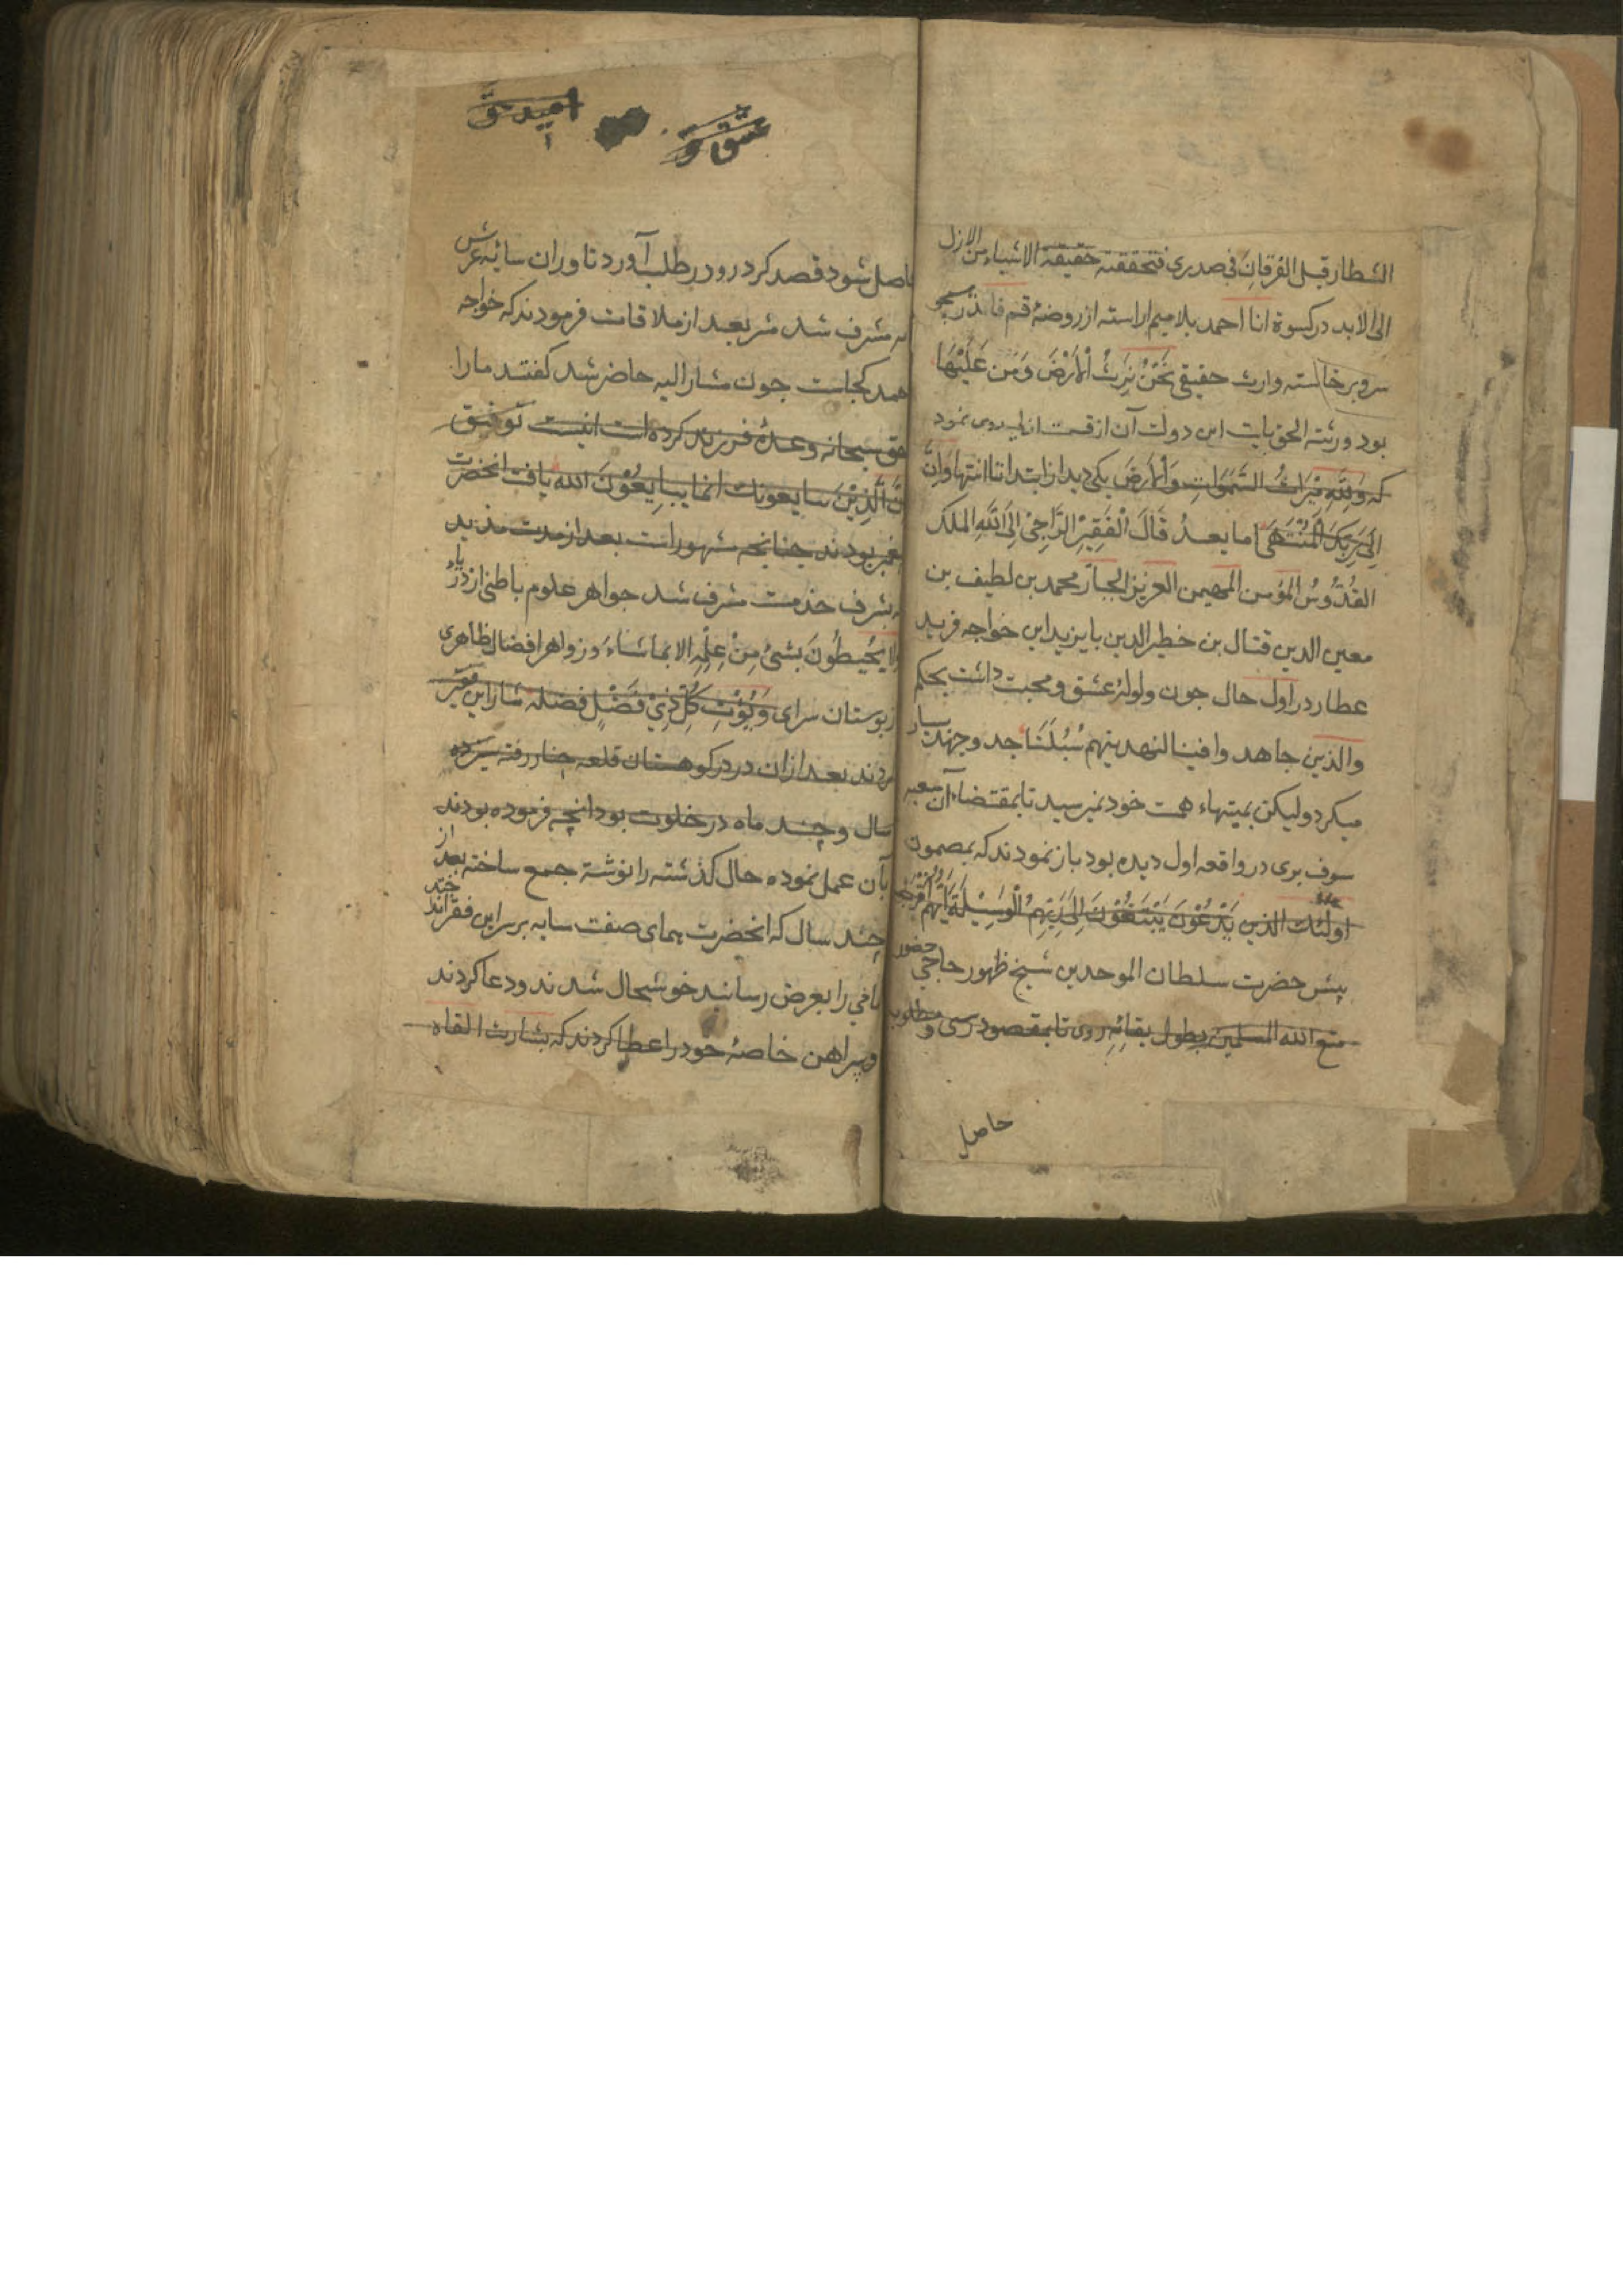 الشطار قبل الفرقان فی صدری فتحققته حقیقة الاشیاء من الازل
الی الابد در کسوة انا احمد بلا میم اراسته از روضهٔ قم فانذر
سر و بر خاسته وارث حقیقی نَحْنُ نَرِثُ الْاَرْضَ وَمَنْ عَلَیْهَا
بود ورثته الحق بایت این دولت آن از قسمت ازلی روی نمود
که وَلِلّٰهِ مِیْرَاثُ السَّمٰوَاتِ وَالْاَرْضَ یکی دید از ابتدا تا انتها وَاِنَّ
اِلٰی رَبِّکَ الْمُنْتَهٰی اما بعدُ قَالَ الْفَقِیْرُ الرَّاجِیْ اِلَی اللّٰهِ الملک
القُدُّوسُ المؤمن المهیمن العزیز الجبار محمد بن لطیف بن
معین الدین قتال بن خطیر الدین بایزید ابن خواجه فرید
عطار در اول حال جون ولولهٔ عشق و محبت داشت بحکم
والذین جاهد وافینا لنهدینهم سُبُلَنَا جد و جهد بسیار
میکرد ولیکن بمیتهاء همت خود نمیرسید تا بمقتضاء آن
سوف بری در واقعه اول دیده بود باز نمودند که بمضمون
اولئک الذین یَدْعُوْنَ یَبْتَغُوْنَ اِلٰی رَبِّهِمُ الْوَسِیْلَةَ اَیُّهُم اَقْرَبُ
پیش حضرت سلطان الموحدین شیخ ظهور حاجی حضور
متع الله المسلمین بطول بقائهِ روی تا بمقصود رسی و مطلوب
حاصل
عشق تو
امید حق
حاصل شود قصد کرد رو در طلب آورد تا وران سایهٔ عرش
مشرف شد بعد از ملاقات فرمودند که خواجه
کجاست جون مشار الیه حاضر شد کفتند ما را
حق سبحانه وعدهٔ فرزند کرده است توفیق
اِنَّ الَّذِیْنَ یبایعونک انما یُبَایِعُوْنَ الله یافت انحضرت
بودند چنانچه مشهور است بعد از مدت مذید
بشرف خدمت مشرف شد جواهر علوم باطنی از
ولا یُحِیطُوْنَ بشئٍ مِنْ عِلْمِهِ الا بما شاءَ و زواهر افضال ظاهری
از بوستان سرای وَیُؤْتِ کُلَّ ذِیْ فَضْلٍ فضله
بعد ازان در کوهستان قلعه چنار رفته سیزده
سال و چند ماه در خلوت بود انچه فرموده بودند
بآن عمل نموده حال کذشته را نوشته جمع ساخته بعد از
چند سال که انحضرت همای صفت سایه بر سر این فقرا
را بعرض رسانید خوشحال شدند و دعا کردند
و پیراهن خاصهٔ خود را عطا کردند که بشارت القاه